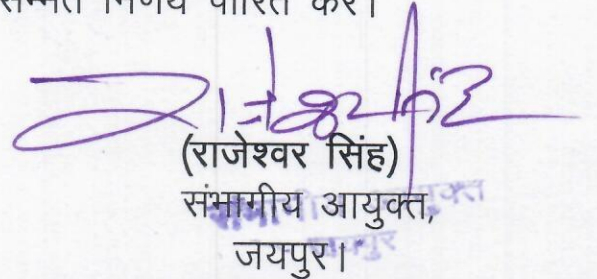 सम्मत निर्णय पारित करें।
(राजेश्वर सिंह)
संभागीय आयुक्त,
जयपुर।